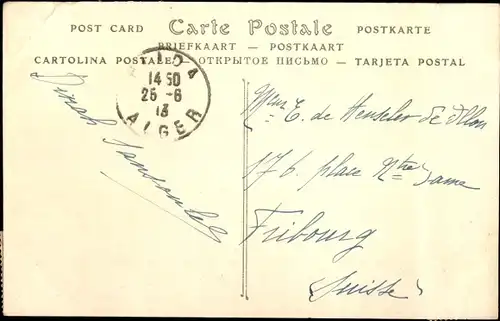 POST CARD Carte Postale POSTKARTE
BRIEFKAART — POSTKAART
CARTOLINA POSTALE — ОТКРЫТОЕ ПИСЬМО — TARJETA POSTAL
14 50
25 - 6
13
ALGER
E. de
176. place Notre Dame
Fribourg
Suisse